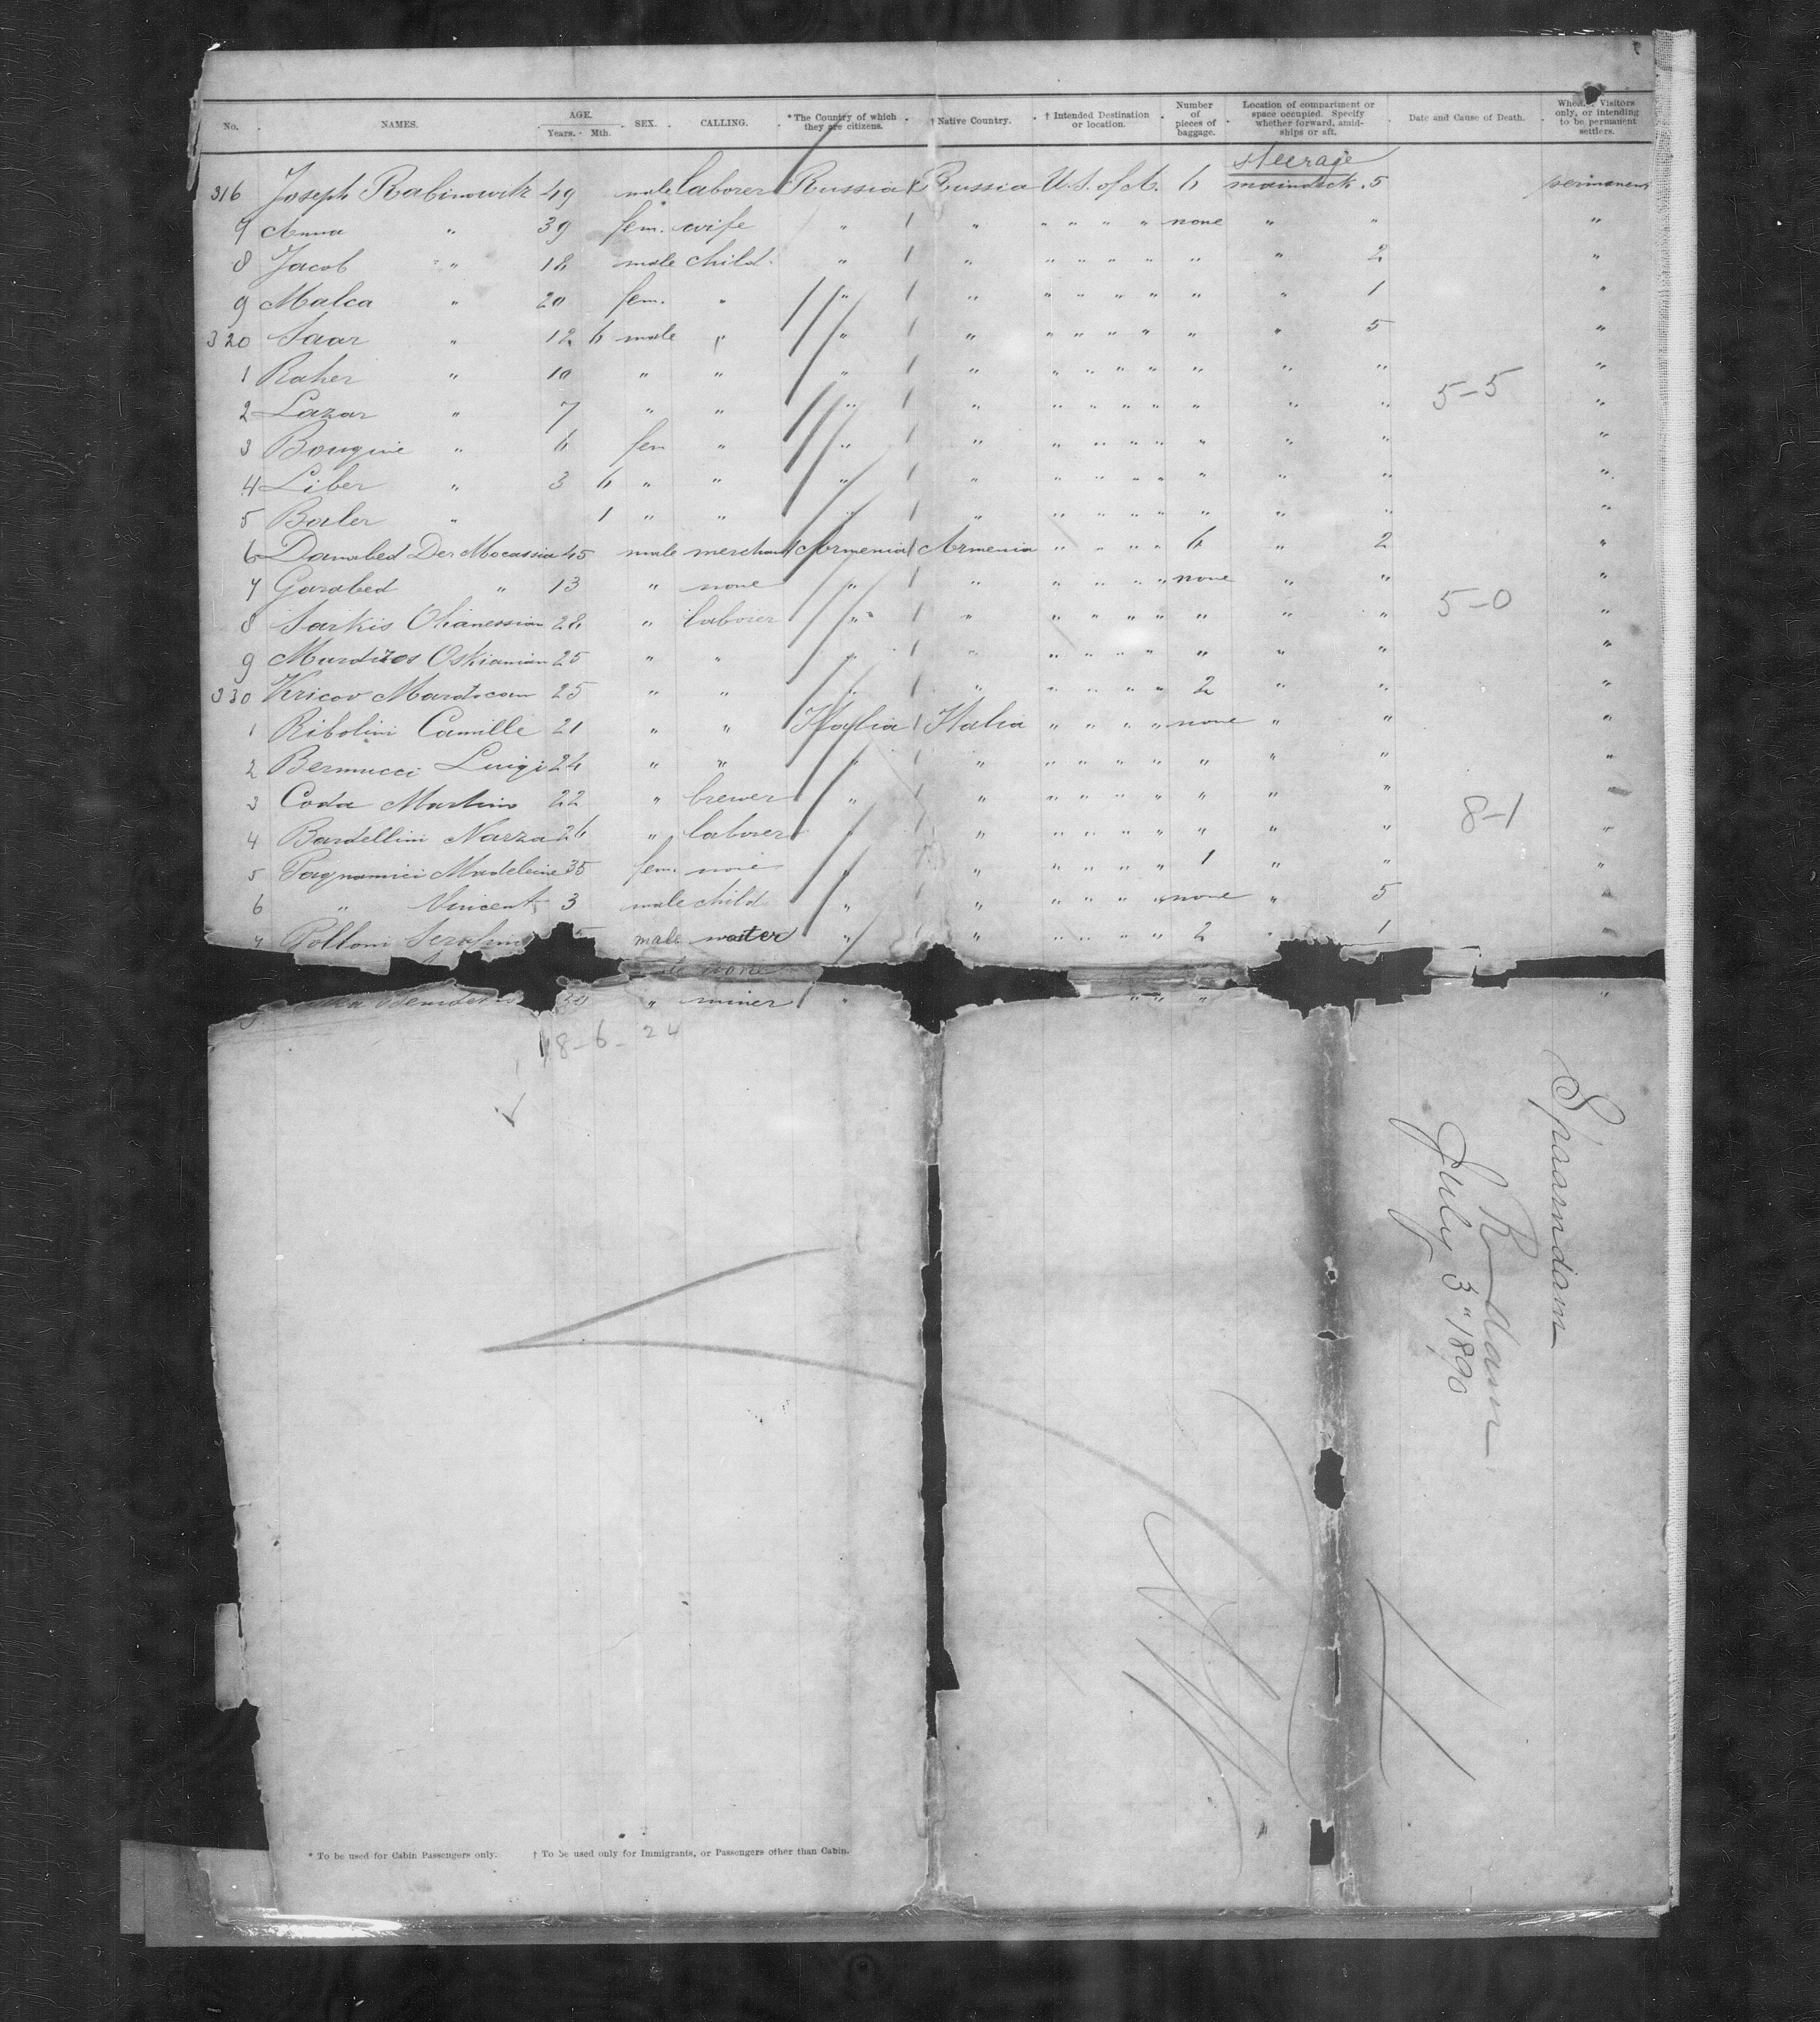 No. NAMES. AGE. Years. Mth. SEX. CALLING. * The Country of which they are citizens. † Native Country. † Intended Destination or location. Number of pieces of baggage. Location of compartment or space occupied. Specify whether forward, amidships or aft. Date and Cause of Death. Visitors only, or intending to be permanent settlers.
steerage
316 Joseph Rabinowitz 49 male laborer Russia Russia U.S. of A. 6 maindeck 5 permanent
7 Anna " 39 fem. wife " " " " " " none " " "
8 Jacob " 18 male child " " " " " " " " 2 "
9 Malca " 20 fem. " " " " " " " " " 1 "
320 Saar " 12 6 male " " " " " " " " " 5 "
1 Raher " 10 " " " " " " " " " " " "
2 Lazar " 7 " " " " " " " " " " " 5-5 "
3 Bougine " 6 fem " " " " " " " " " " "
4 Liber " 3 6 " " " " " " " " " " " "
5 " 1 " " " " " " " " " " " "
6 Der 45 male merchant Armenia Armenia " " " " 6 " 2 "
7 Garabed " 13 " none " " " " " " none " " "
8 Sarkis 28 " laborer " " " " " " " " " 5-0 "
9 25 " " " " " " " " " " " "
330 25 " " " " " " " " 2 " " "
1 Ribolini Camille 21 " " Italia Italia " " " " none " " "
2 Bernucci Luigi 24 " " " " " " " " " " " "
3 Coda Martino 22 " brewer " " " " " " " " " 8-1 "
4 Bardellini 26 " laborer " " " " " " " " " "
5 Madeleine 35 fem. " " " " " " 1 " " "
6 " Vincent 3 male child " " " " " " none " 5 "
7 Polloni male waiter " " " " " " 2 " 1 "
none
" miner " " " " "
18-6-24
Spaarndam
July 3" 1890
* To be used for Cabin Passengers only. † To be used only for Immigrants, or Passengers other than Cabin.